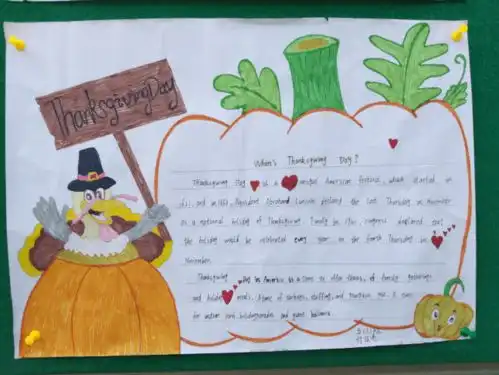 Thanksgiving Day
When's Thanksgiving Day?
Thanksgiving Day is a unique American festival, which started in
and in 1863, President Abraham Lincoln declared the last Thursday in November
as a national holiday of Thanksgiving. Finally in 1941, congress declared that
the holiday would be celebrated every year on the fourth Thursday in
November.
Thanksgiving Day in America is a time to offer thanks, of family gatherings
and holiday meals. A time of turkeys, stuffing, and pumpkin pie. A time
for Indian corn, holiday parades and giant balloons.